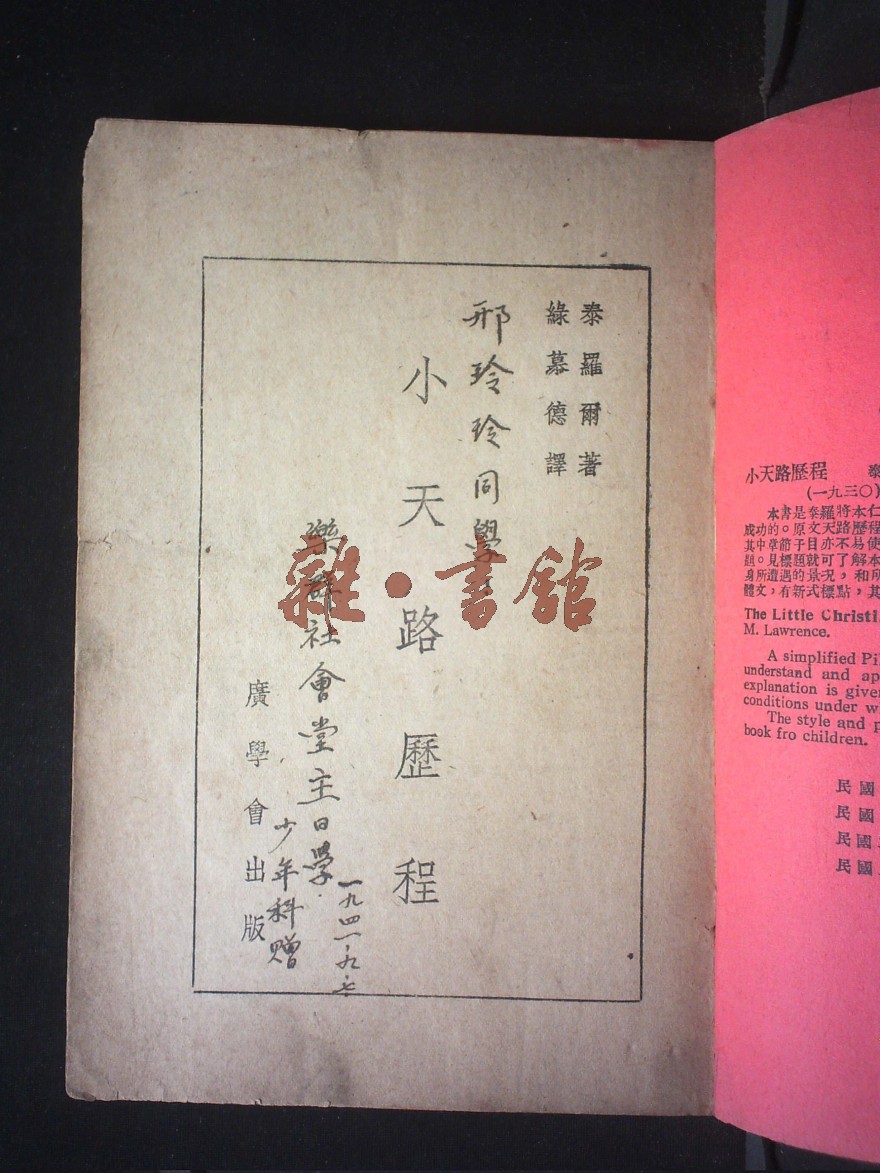 泰羅爾著
綠慕德譯
邢玲玲同學
小天路歷程
一九四一·九·七
樂群社會堂主日學
少年科贈
廣學會出版
雜·書館
小天路歷程
(一九三〇)
本書是泰羅將本仁
成功的。原文天路歷程
其中章節子目亦不易使
題。見標題就可了解本
身所遭遇的景况，和所
體文，有新式標點，其
The Little Christi
M. Lawrence.
A simplified Pi
understand and ap
explanation is give
conditions under w
The style and p
book fro children.
民國
民國
民國
民國